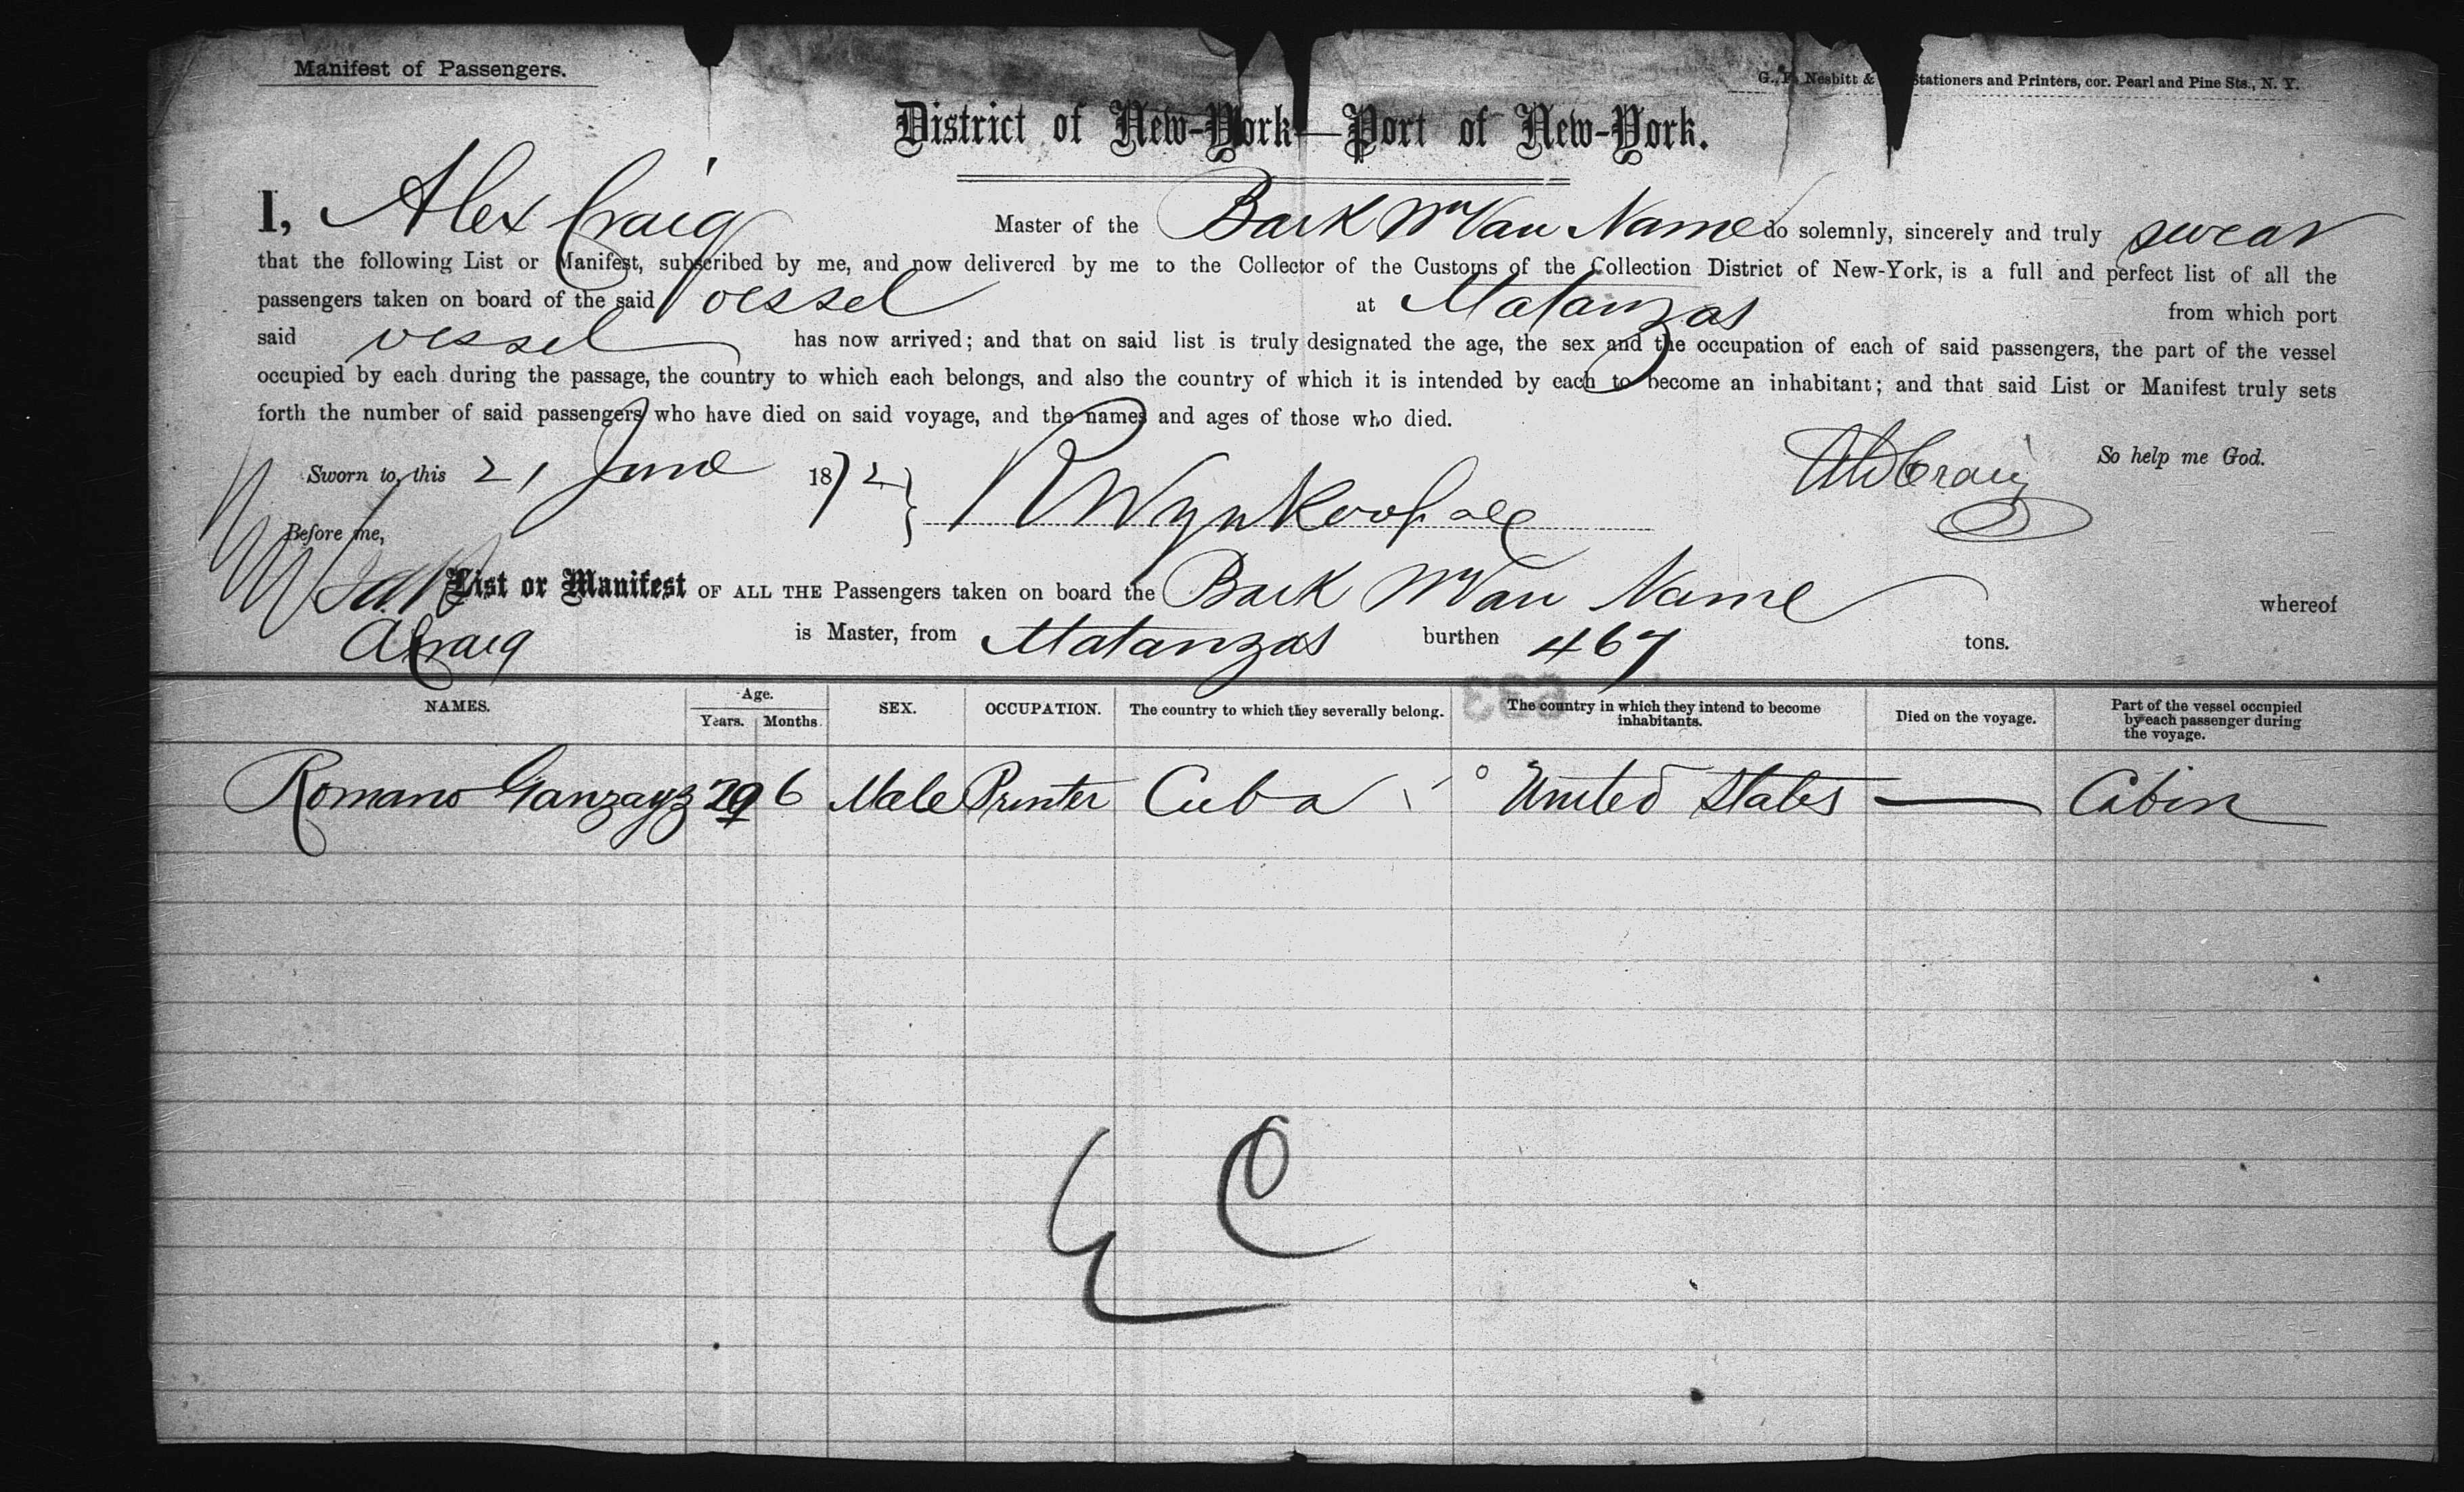 Manifest of Passengers.
G. F. Nesbitt & Stationers and Printers, cor. Pearl and Pine Sts., N. Y.
District of New-York—Port of New-York.
I, Alex Craig Master of the Bark Wm Van Name do solemnly, sincerely and truly swear
that the following List or Manifest, subscribed by me, and now delivered by me to the Collector of the Customs of the Collection District of New-York, is a full and perfect list of all the
passengers taken on board of the said vessel at Matanzas from which port
said vessel has now arrived; and that on said list is truly designated the age, the sex and the occupation of each of said passengers, the part of the vessel
occupied by each during the passage, the country to which each belongs, and also the country of which it is intended by each to become an inhabitant; and that said List or Manifest truly sets
forth the number of said passengers who have died on said voyage, and the names and ages of those who died.
So help me God.
Craig
Sworn to, this 21 June 1872 } R Wynkoop
Before me,
List or Manifest OF ALL THE Passengers taken on board the Bark Wm Van Name whereof
A Craig is Master, from Matanzas burthen 467 tons.
NAMES. Age. Years. Months. SEX. OCCUPATION. The country to which they severally belong. The country in which they intend to become inhabitants. Died on the voyage. Part of the vessel occupied by each passenger during the voyage.
Romano Ganzayz 29 6 Male Printer Cuba United States — Cabin